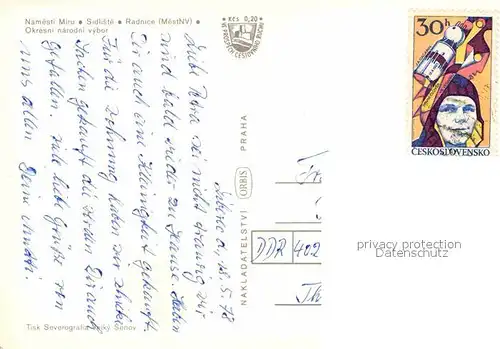 Náměstí Míru • Sídliště • Radnice (MěstNV) •
Okresní národní výbor
Kčs 0,20
VE PROSPĚCH CESTOVNÍHO RUCHU
30h
ČESKOSLOVENSKO
Liberec d., 18.5.78
Liebe Petra sei nicht traurig wir
sind bald wieder zu Hause. Haben
Dir auch eine Kleinigkeit gekauft.
Für die Wohnung haben wir
Sachen gekauft die werden Dir auch
gefallen. Viele liebe Grüße von
uns allen Deine
NAKLADATELSTVÍ ORBIS PRAHA
DDR 402
Th
Tisk Severografia Velký Šenov
privacy protection
Datenschutz